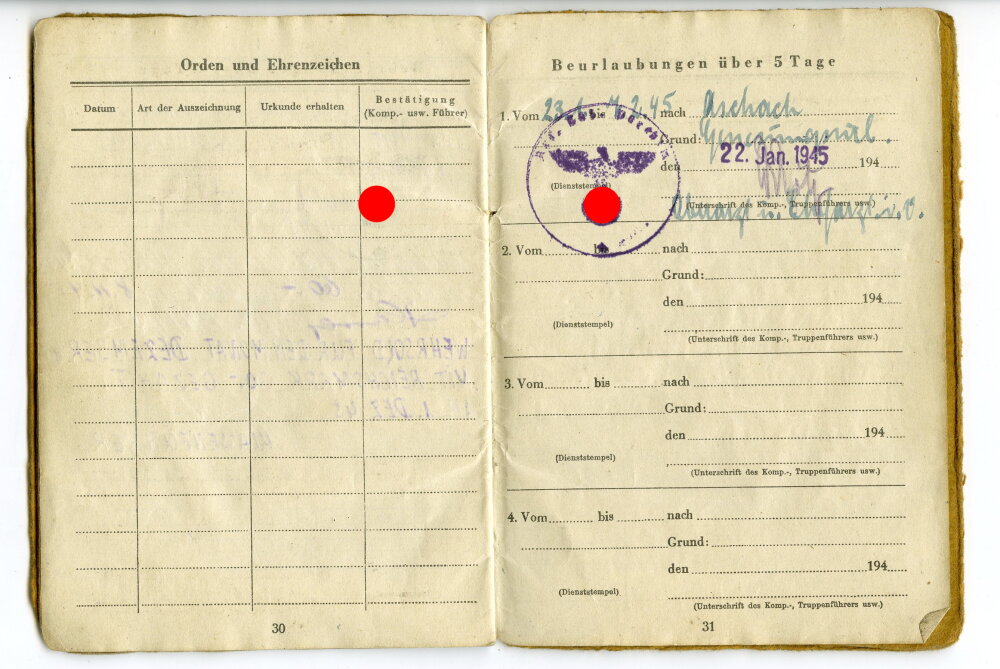 Orden und Ehrenzeichen
Datum
Art der Auszeichnung
Urkunde erhalten
Bestätigung
(Komp.- usw. Führer)
30
Beurlaubungen über 5 Tage
1. Vom 23.1. bis 7.2.45 nach Aschach
Grund: Genesungsurl.
den 22. Jan. 1945 194
(Dienststempel)
(Unterschrift des Komp.-, Truppenführers usw.)
2. Vom bis nach
Grund:
den 194
(Dienststempel)
(Unterschrift des Komp.-, Truppenführers usw.)
3. Vom bis nach
Grund:
den 194
(Dienststempel)
(Unterschrift des Komp.-, Truppenführers usw.)
4. Vom bis nach
Grund:
den 194
(Dienststempel)
(Unterschrift des Komp.-, Truppenführers usw.)
31